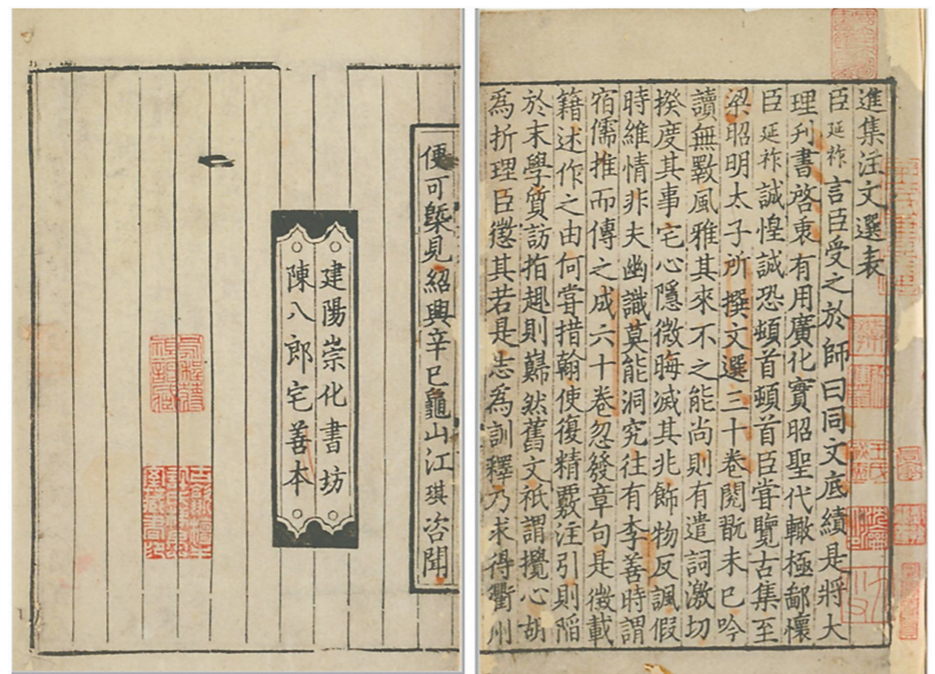 進集注文選表
臣延祚言臣受之於師曰同文底績是將大
理刊書啓秉有用廣化實昭聖代轍極鄙懷
臣延祚誠惶誠恐頓首頓首臣甞覽古集至
梁昭明太子所撰文選三十卷閱翫未已吟
讀無斁風雅其來不之能尚則有遣詞激切
揆度其事宅心隱微晦滅其兆飾物反諷假
時維情非夫幽識莫能洞究往有李善時謂
宿儒推而傳之成六十卷忽發章句是徵載
籍述作之由何甞措翰使復精覈注引則陷
於末學質訪指趣則巋然舊文祇謂攪心胡
為折理臣懲其若是志為訓釋乃求得衢州
便可槩見紹興辛巳龜山江琪咨聞
建陽崇化書坊
陳八郎宅善本